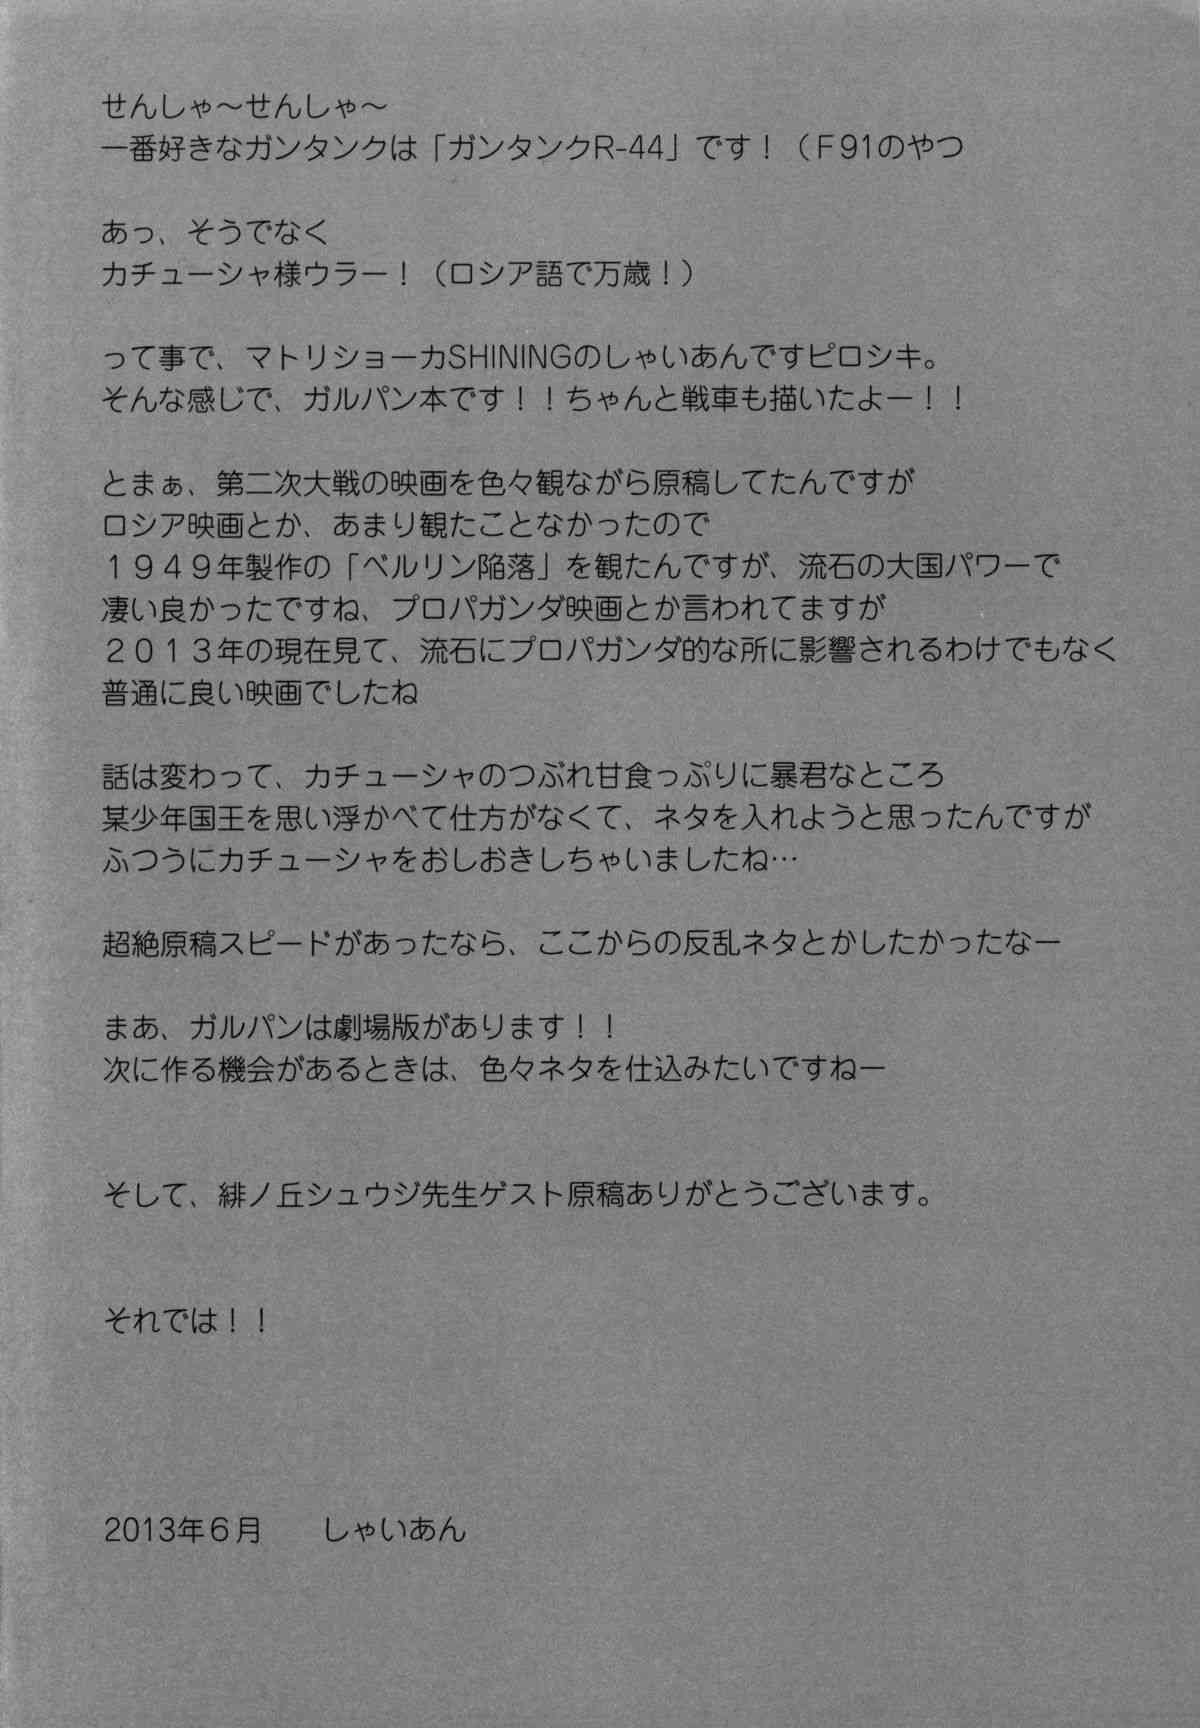 せんしゃ～せんしゃ～
一番好きなガンタンクは「ガンタンクR-44」です！（Ｆ91のやつ
あっ、そうでなく
カチューシャ様ウラー！（ロシア語で万歳！）
って事で、マトリショーカSHININGのしゃいあんですピロシキ。
そんな感じで、ガルパン本です！！ちゃんと戦車も描いたよー！！
とまぁ、第二次大戦の映画を色々観ながら原稿してたんですが
ロシア映画とか、あまり観たことなかったので
１９４９年製作の「ベルリン陥落」を観たんですが、流石の大国パワーで
凄い良かったですね、プロパガンダ映画とか言われてますが
２０１３年の現在見て、流石にプロパガンダ的な所に影響されるわけでもなく
普通に良い映画でしたね
話は変わって、カチューシャのつぶれ甘食っぷりに暴君なところ
某少年国王を思い浮かべて仕方がなくて、ネタを入れようと思ったんですが
ふつうにカチューシャをおしおきしちゃいましたね…
超絶原稿スピードがあったなら、ここからの反乱ネタとかしたかったなー
まあ、ガルパンは劇場版があります！！
次に作る機会があるときは、色々ネタを仕込みたいですねー
そして、緋ノ丘シュウジ先生ゲスト原稿ありがとうございます。
それでは！！
2013年６月　　しゃいあん